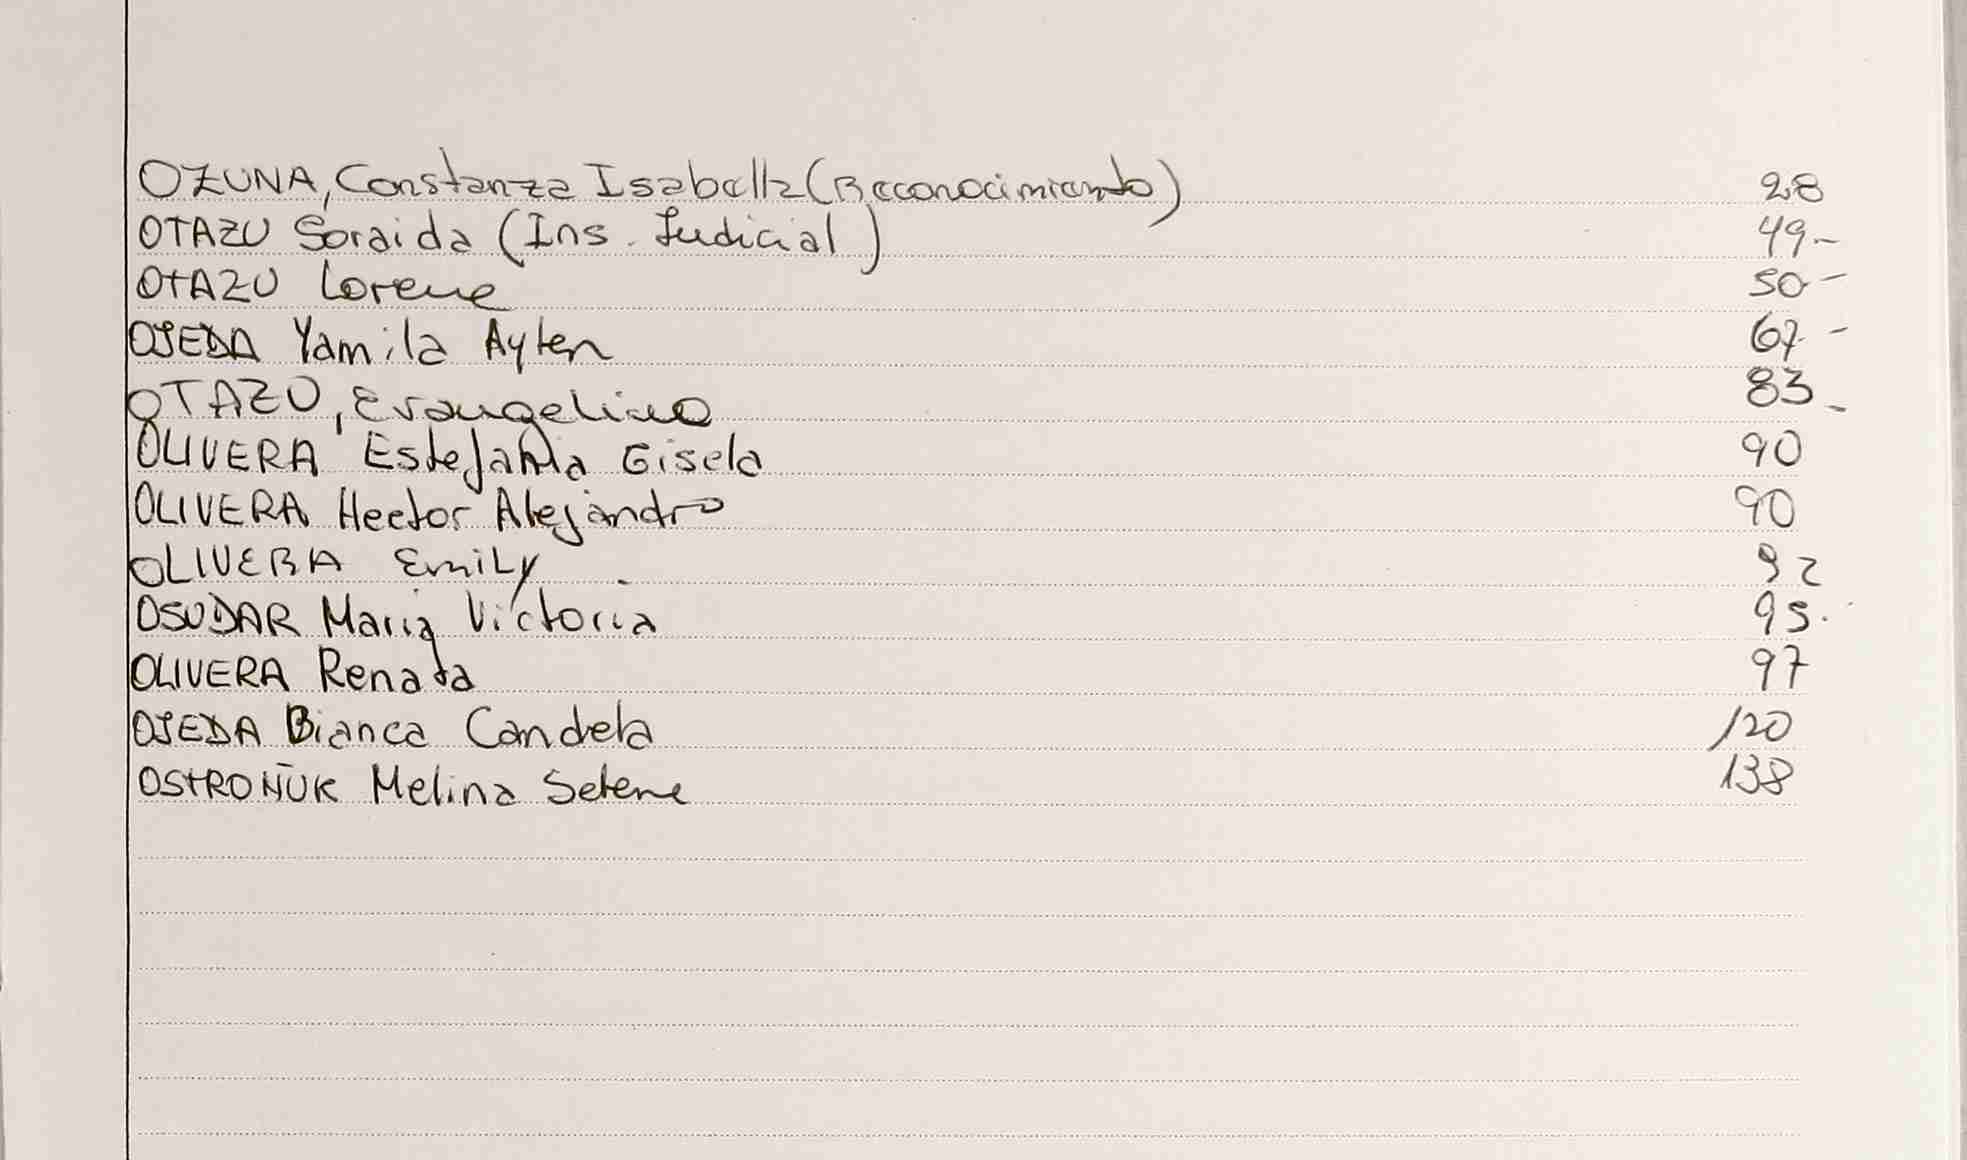 OZUNA, Constanza Isabella (Reconocimiento) 28
OTAZU Soraida (Ins. Judicial) 49-
OTAZU Lorena 50-
OJEDA Yamila Aylen 67-
OTAZU, Evangelina 83-
OLIVERA Estefania Gisela 90
OLIVERA Hector Alejandro 90
OLIVERA Emily 92
OSUDAR Maria Victoria 95.
OLIVERA Renata 97
OJEDA Bianca Candela 120
Melina Selene 138